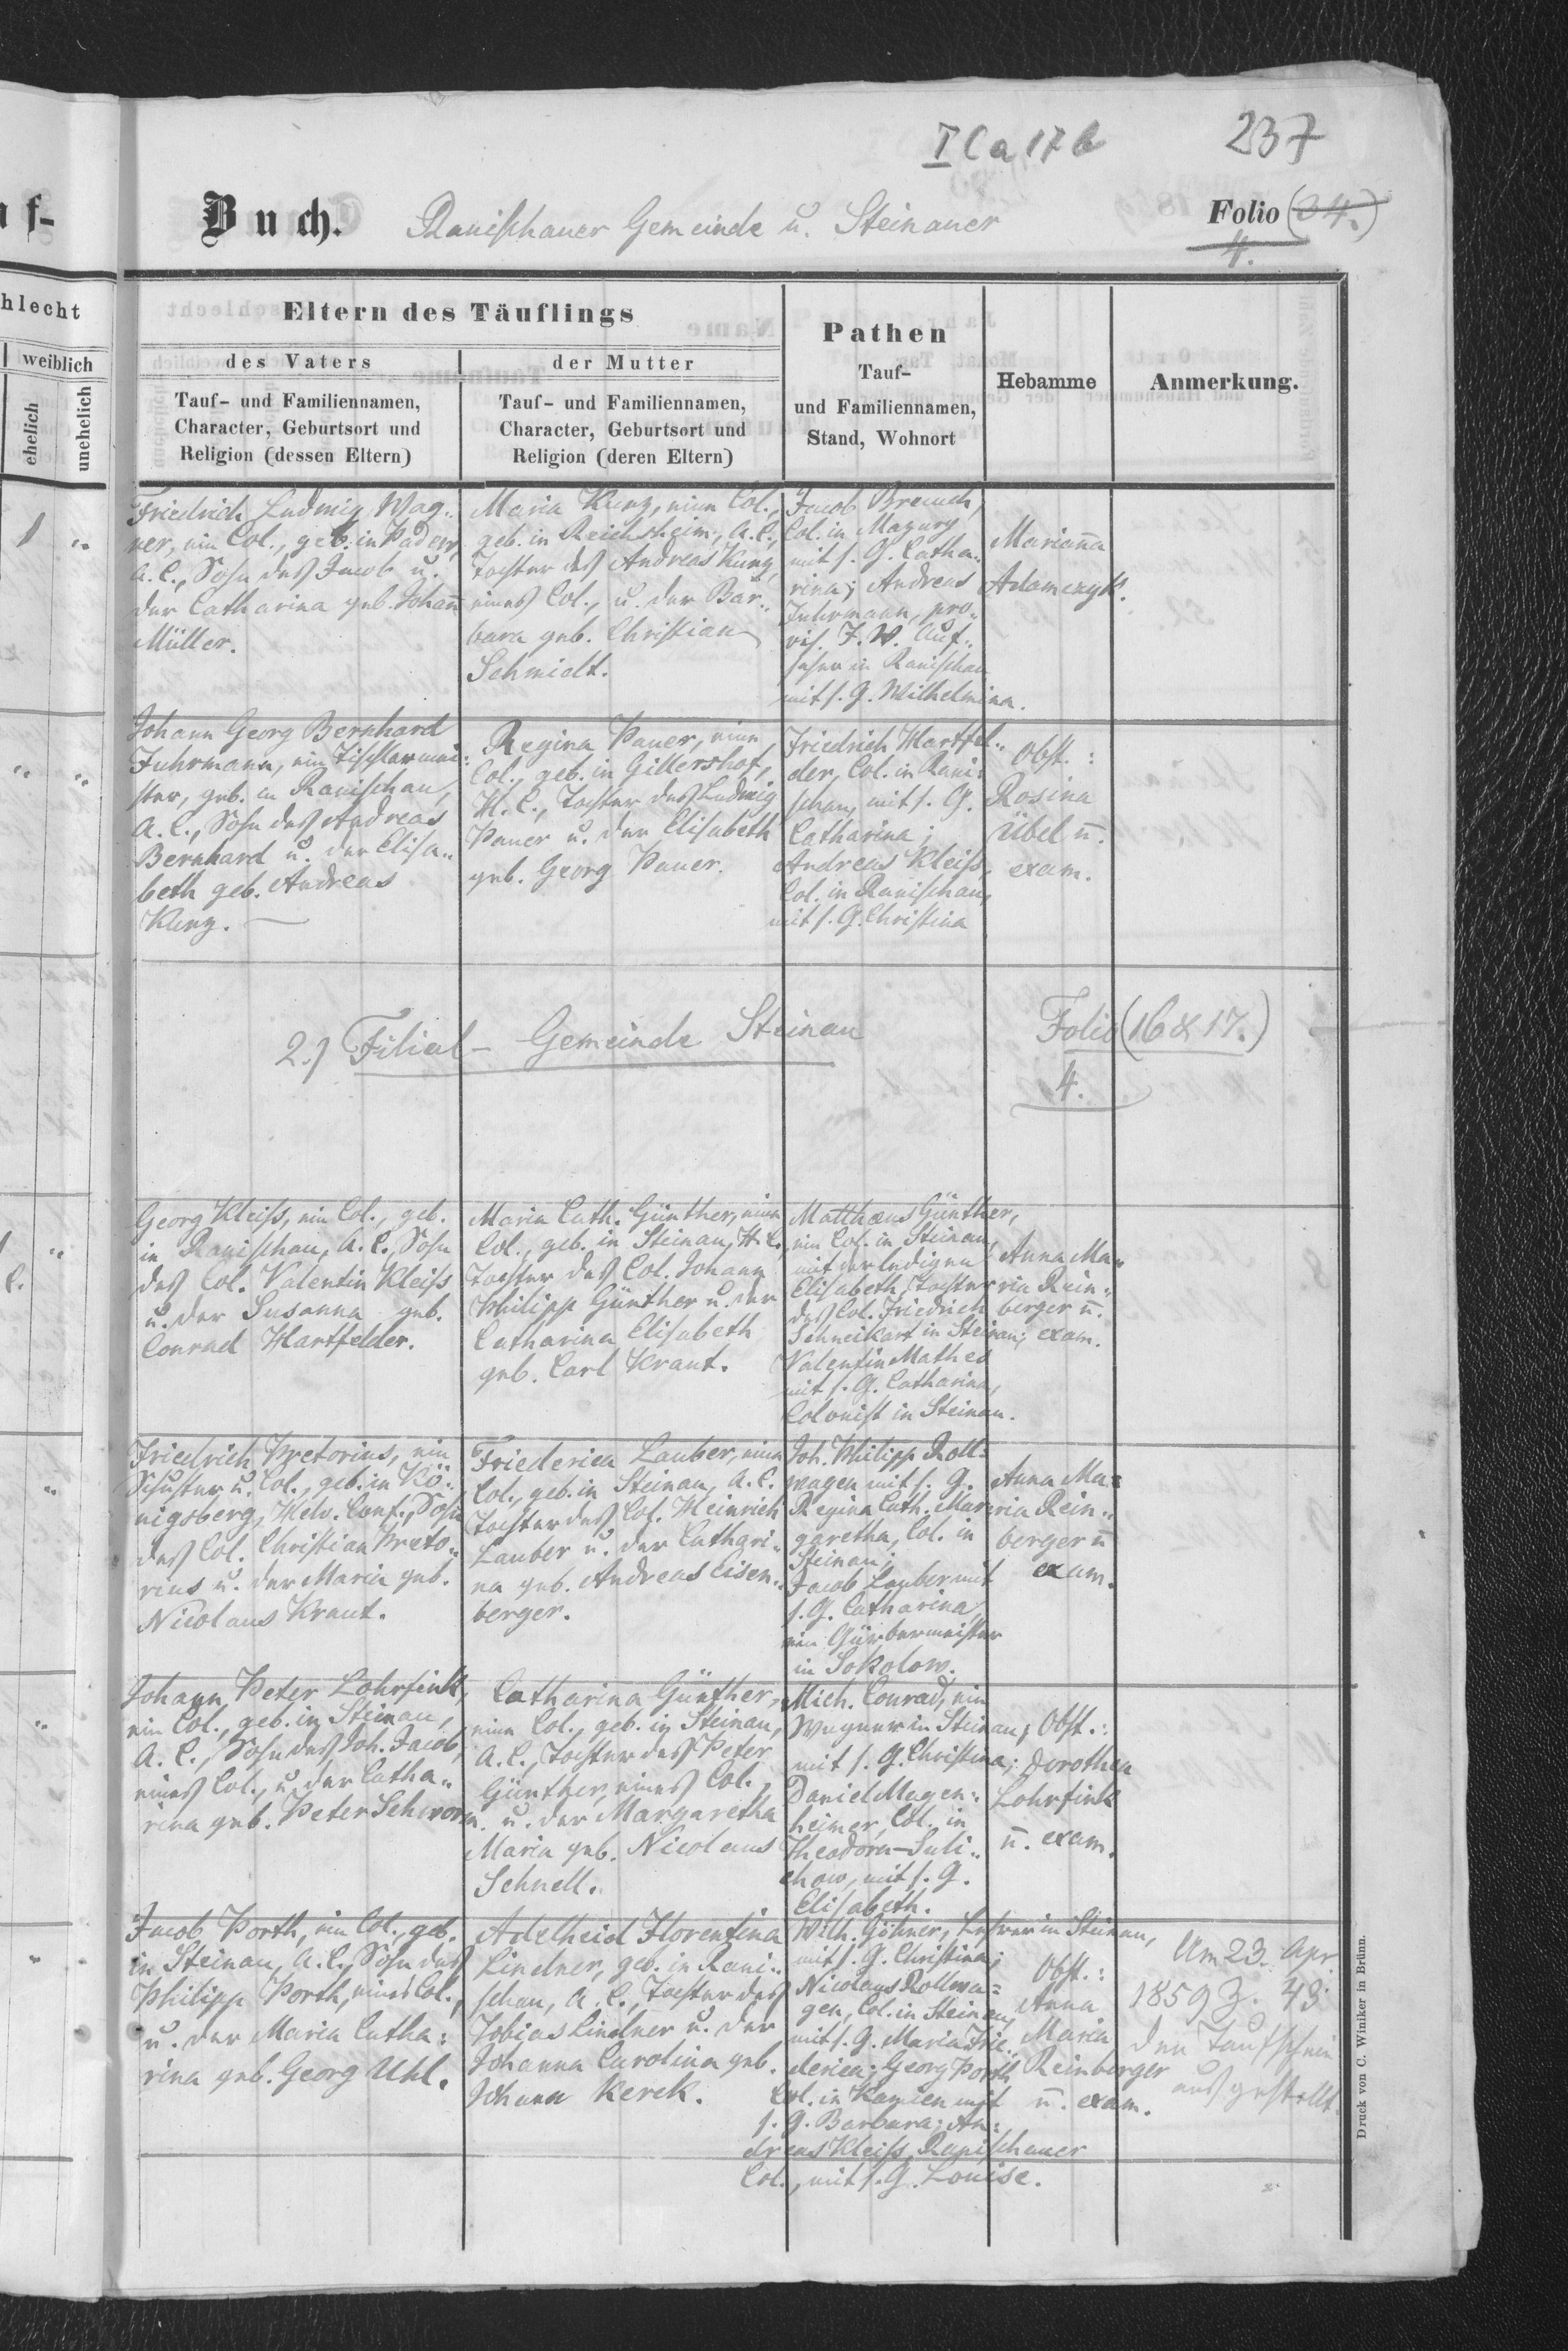 I C a 17 b
237
uf-
Buch.
Ranischauer Gemeinde u. Steinauer
Folio (34.)
4.
hlecht
weiblich
ehelich
unehelich
Eltern des Täuflings
des Vaters
Tauf- und Familiennamen,
Character, Geburtsort und
Religion (dessen Eltern)
der Mutter
Tauf- und Familiennamen,
Character, Geburtsort und
Religion (deren Eltern)
Pathen
Tauf-
und Familiennamen,
Stand, Wohnort
Hebamme
Anmerkung.
1 "
Friedrich Ludwig Wag-
ner, ein Col., geb. in Padew,
A. C., Sohn des Jacob u.
der Catharina geb. Johann
Müller.
Maria Kunz, eine Col.,
geb. in Reichsheim, A. C.,
Tochter des Andreas Kunz,
eines Col., u. der Bar-
bara geb. Christian
Schmidt.
Jacob Breuch,
Col. in Mazury
mit s. G. Catha-
rina; Andreas
Fuhrmann, pro-
vis. F. W. Auf-
seher in Ranischau
mit s. G. Wilhelmina.
Marianna
Adamczyk.
Johann Georg Bernhard
Fuhrmann, ein Tischlermei-
ster, geb. in Ranischau,
A. C., Sohn des Andreas
Bernhard u. der Elisa-
beth geb. Andreas
Kunz.
Regina Pauer, eine
Col., geb. in Gillershof,
H. C., Tochter des Ludwig
Pauer u. der Elisabeth
geb. Georg Pauer.
Friedrich Hartfel-
der, Col. in Rani-
schau, mit s. G.
Catharina;
Andreas Kleiß,
Col. in Ranischau,
mit s. G. Christina
Obst.:
Rosina
Übel u.
exam.
2.) Filial - Gemeinde Steinau
Folio (16 & 17.)
4.
Georg Kleiß, ein Col., geb.
in Ranischau, A. C., Sohn
des Col. Valentin Kleiß
u. der Susanna geb.
Conrad Hartfelder.
Maria Cath. Günther, eine
Col., geb. in Steinau, H. C.
Tochter des Col. Johann
Philipp Günther u. der
Catharina Elisabeth
geb. Carl Kraut.
Matthaeus Günther,
ein Col. in Steinau,
mit der ledigen
Elisabeth, Tochter
des Col. Friedrich
Schneikart in Steinau;
Valentin Mathes
mit s. G. Catharina,
Colonist in Steinau.
Anna Ma-
ria Rein-
berger u.
exam.
Friedrich Pretorius, ein
Schuster u. Col., geb. in Kö-
nigsberg, Helv. Conf., Sohn
des Col. Christian Preto-
rius u. der Maria geb.
Nicolaus Kraut.
Friederica Lauber, eine
Col., geb. in Steinau, A. C.
Tochter des Col. Heinrich
Lauber u. der Cathari-
na geb. Andreas Eisen-
berger.
Joh. Philipp Roll-
wagen mit s. G.
Regina Cath. Mar-
garetha, Col. in
Steinau;
Jacob Lauber mit
s. G. Catharina
ein Gürbermeister
in Sokolow.
Anna Ma-
ria Rein-
berger u.
exam.
Johann Peter Lohrfink,
ein Col., geb. in Steinau,
A. C., Sohn des Joh. Jacob,
eines Col., u. der Catha-
rina geb. Peter Schworm.
Catharina Günther,
eine Col., geb. in Steinau,
A. C., Tochter des Peter
Günther, eines Col.,
u. der Margaretha
Maria geb. Nicolaus
Schnell.
Mich. Conrad, ein
Wagner in Steinau;
mit s. G. Christina;
Daniel Magen-
heimer, Col. in
Theodora-Suli-
chow, mit s. G.
Elisabeth.
Obst.:
Dorothea
Lohrfink
u. exam.
Jacob Porth, ein Col., geb.
in Steinau, A. C. Sohn des
Philipp Porth, eines Col.,
u. der Maria Catha-
rina geb. Georg Uhl.
Adelheid Florentina
Lindner, geb. in Rani-
schau, A. C., Tochter des
Tobias Lindner u. der
Johanna Carolina geb.
Johann Kerek.
Wilh. Göhner, Lehrer in Steinau,
mit s. G. Christina;
Nicolaus Rollwa-
gen, Col. in Steinau,
mit s. G. Maria Frie-
derica; Georg Porth
Col. in Kamien mit
s. G. Barbara; An-
dreas Kleiß, Ranischauer
Col., mit s. G. Louise.
Obst.:
Anna
Maria
Reinberger
u. exam.
Am 23. Apr
1859 Z. 43
den Taufschein
ausgestellt.
Druck von C. Winiker in Brünn.